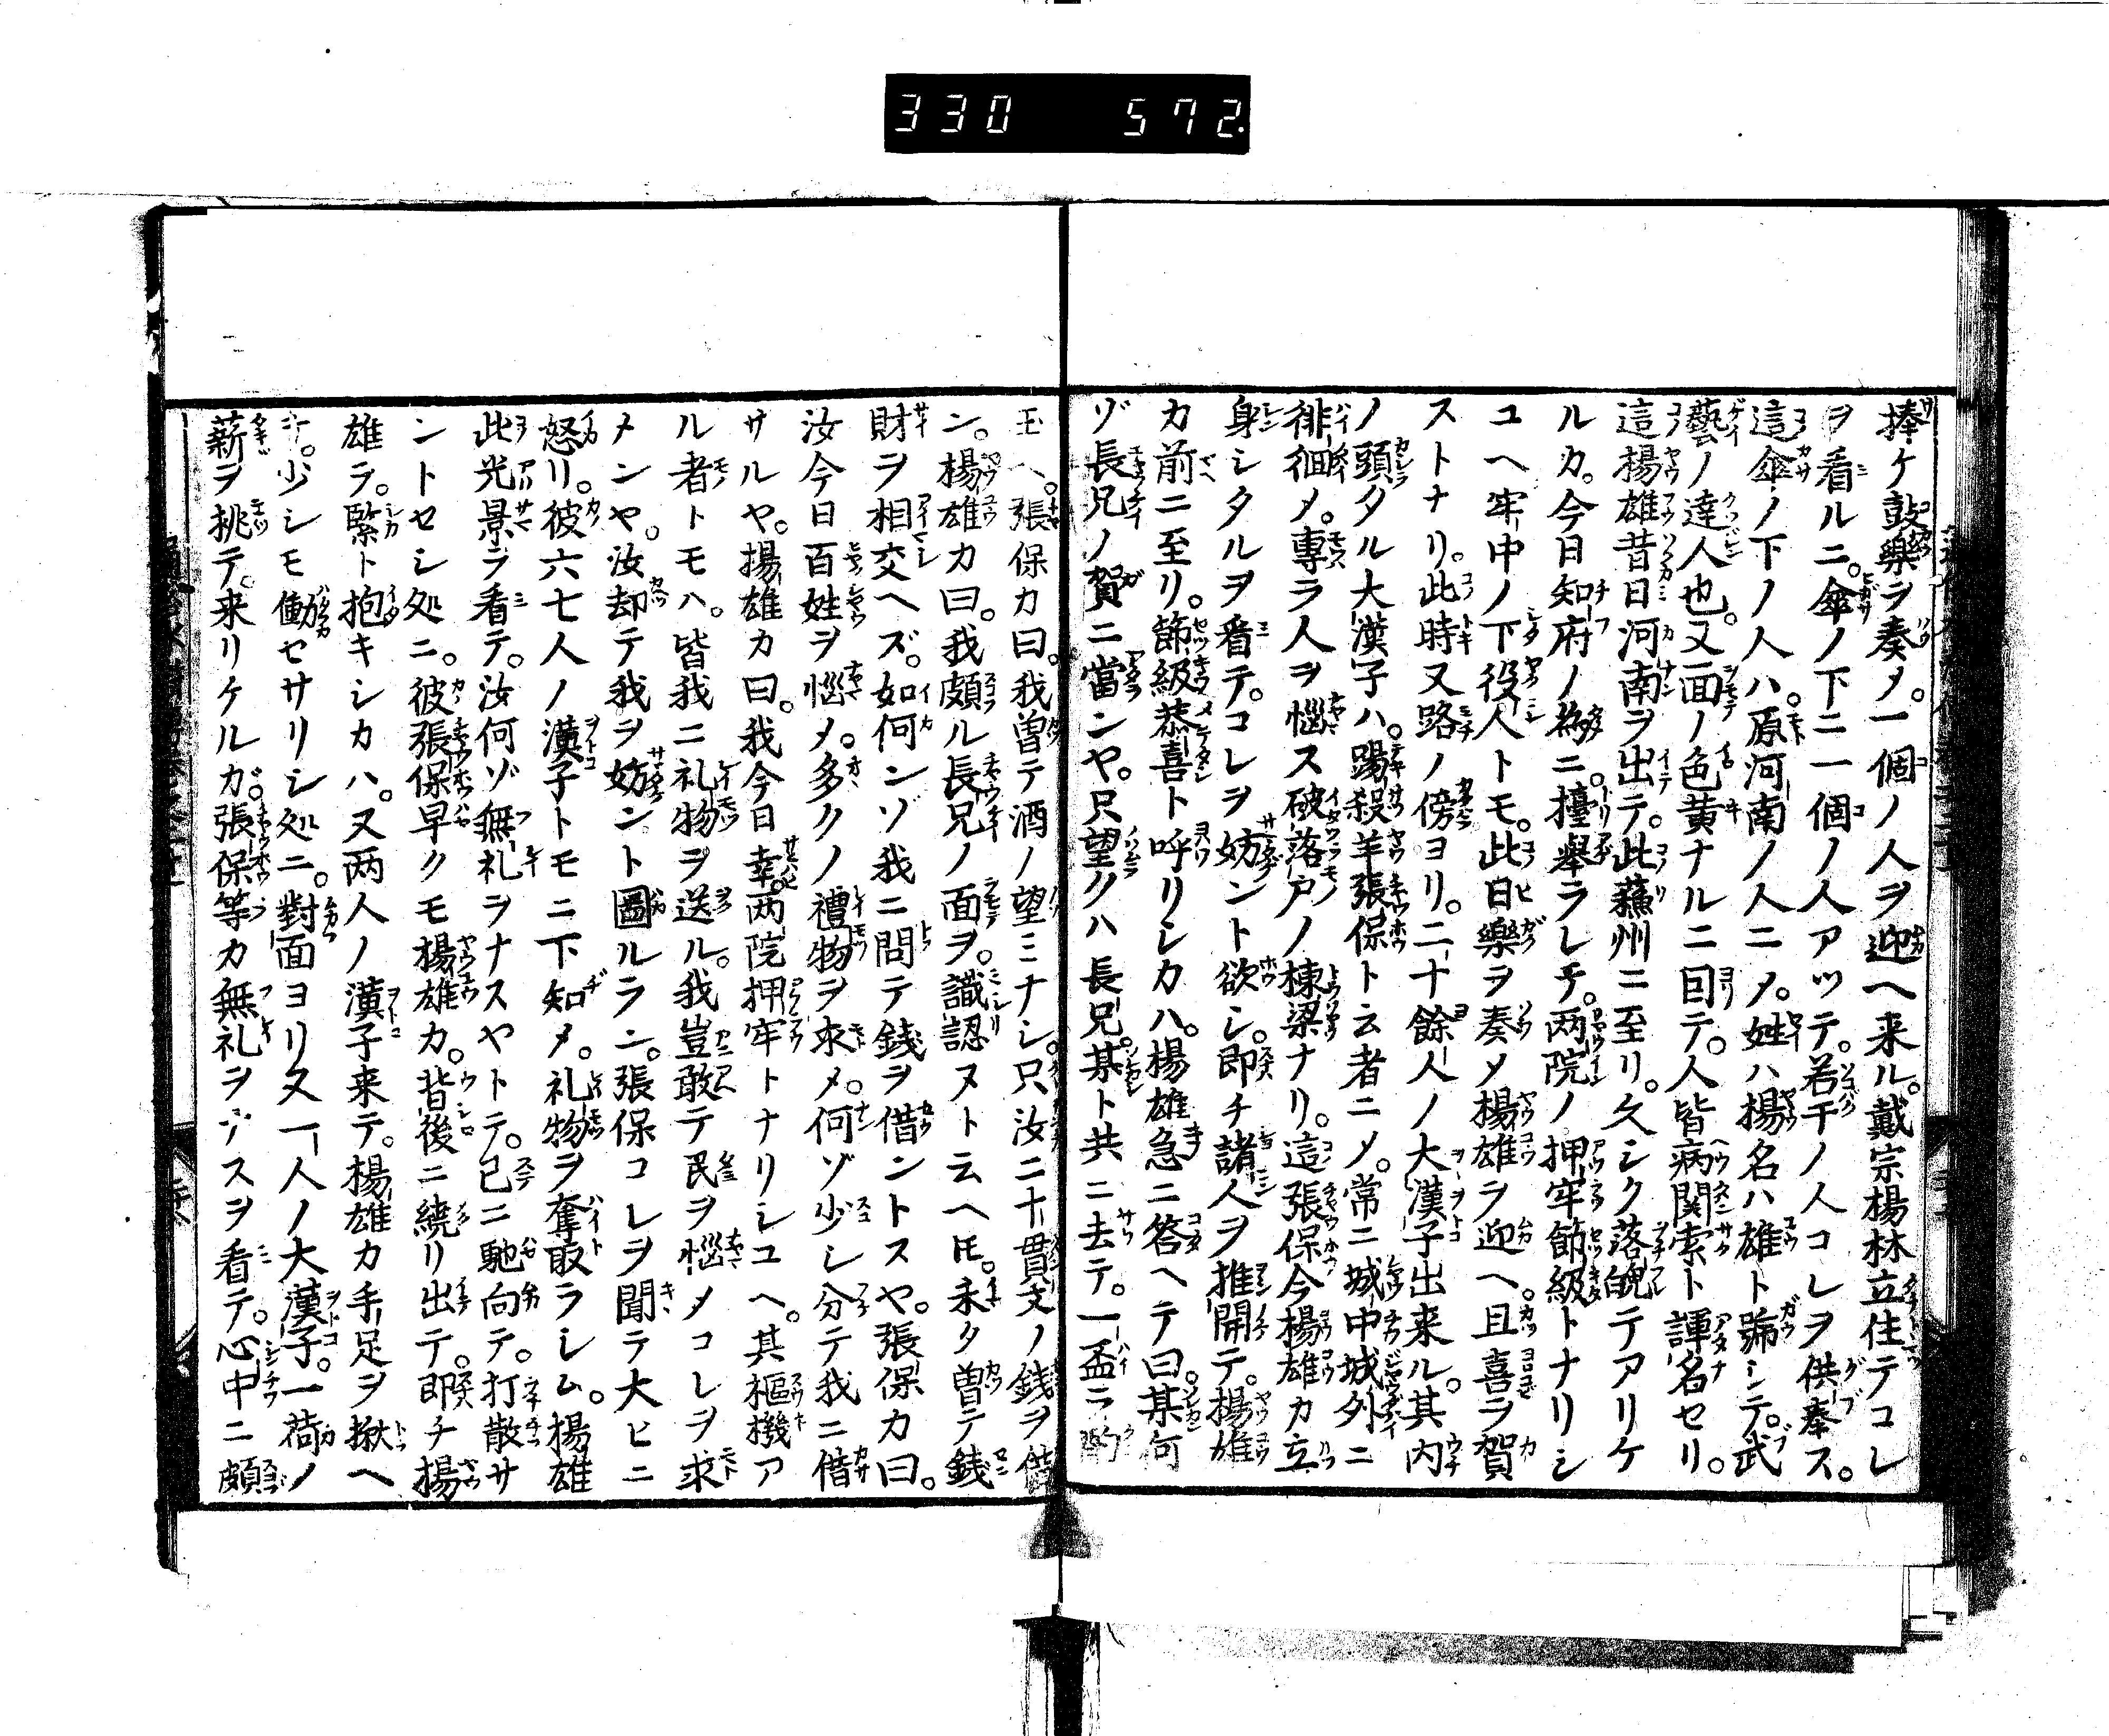 330 572.
捧ケ鼓樂ヲ奏メ。一個ノ人ヲ迎ヘ来ル。戴宗楊林立住テコレ
ヲ看ルニ。傘ノ下ニ一個ノ人アツテ。若干ノ人コレヲ供奉ス。
這傘ノ下ノ人ハ。原河南ノ人ニメ。姓ハ楊名ハ雄ト號シテ。武
藝ノ達人也。又面ノ色黄ナルニ囙テ。人皆病関索ト諢名セリ。
這楊雄昔日河南ヲ出テ。此蘓州ニ至リ。久シク落魄テアリケ
ルカ。今日知府ノ為ニ。擡舉ラレテ。两院ノ押牢節級トナリシ
ユヘ牢中ノ下役人トモ。此日樂ヲ奏メ楊雄ヲ迎ヘ。且喜ヲ賀
ストナリ。此時又路ノ傍ヨリ。二十餘人ノ大漢子出来ル。其内
ノ頭タル大漢子ハ。踢殺羊張保ト云者ニメ。常ニ城中城外ニ
徘徊メ。專ラ人ヲ惱ス破落户ノ棟梁ナリ。這張保今楊雄カ立
身シタルヲ看テ。コレヲ妨ント欲シ。即チ諸人ヲ推開テ。楊雄
カ前ニ至リ。節級恭喜ト呼リシカハ。楊雄急ニ答ヘテ曰。某何
ゾ長兄ノ賀ニ當ンヤ。只望クハ長兄。某ト共ニ去テ。一盃ヲ酌
玉ヘ。張保カ曰。我曽テ酒ノ望ミナシ。只汝ニ十貫文ノ錢ヲ借
ン。楊雄カ曰。我頗ル長兄ノ面ヲ。識認ヌト云ヘ𪜈。未タ曽テ銭
財ヲ相交ヘズ。如何ンゾ我ニ問テ銭ヲ借ントスヤ。張保カ曰。
汝今日百姓ヲ惱メ。多クノ禮物ヲ求メ。何ゾ少シ分テ我ニ借
サルヤ。楊雄カ曰。我今日幸。两院押牢トナリシユヘ。其樞機ア
ル者トモハ。皆我ニ礼物ヲ送ル。我豈敢テ民ヲ惱メコレヲ求
メンヤ。汝却テ我ヲ妨ント圖ルラン。張保コレヲ聞テ大ヒニ
怒リ。彼六七人ノ漢子トモニ下知メ。礼物ヲ奪取ラシム。楊雄
此光景ヲ看テ。汝何ゾ無礼ヲナスヤトテ。已ニ馳向テ。打散サ
ントセシ処ニ。彼張保早クモ楊雄カ。背後ニ繞リ出テ。即チ楊
雄ヲ。緊ト抱キシカハ。又两人ノ漢子来テ。楊雄カ手足ヲ揪ヘ
テ。少シモ働セサリシ処ニ。對面ヨリ又一人ノ大漢子。一荷ノ
薪ヲ挑テ。来リケルガ。張保等カ無礼ヲナスヲ看テ。心中ニ頗